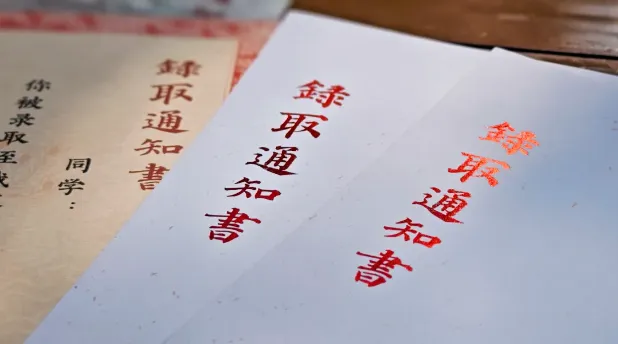 錄取通知書
同学:
你被录取至
錄取通知書
錄取通知書